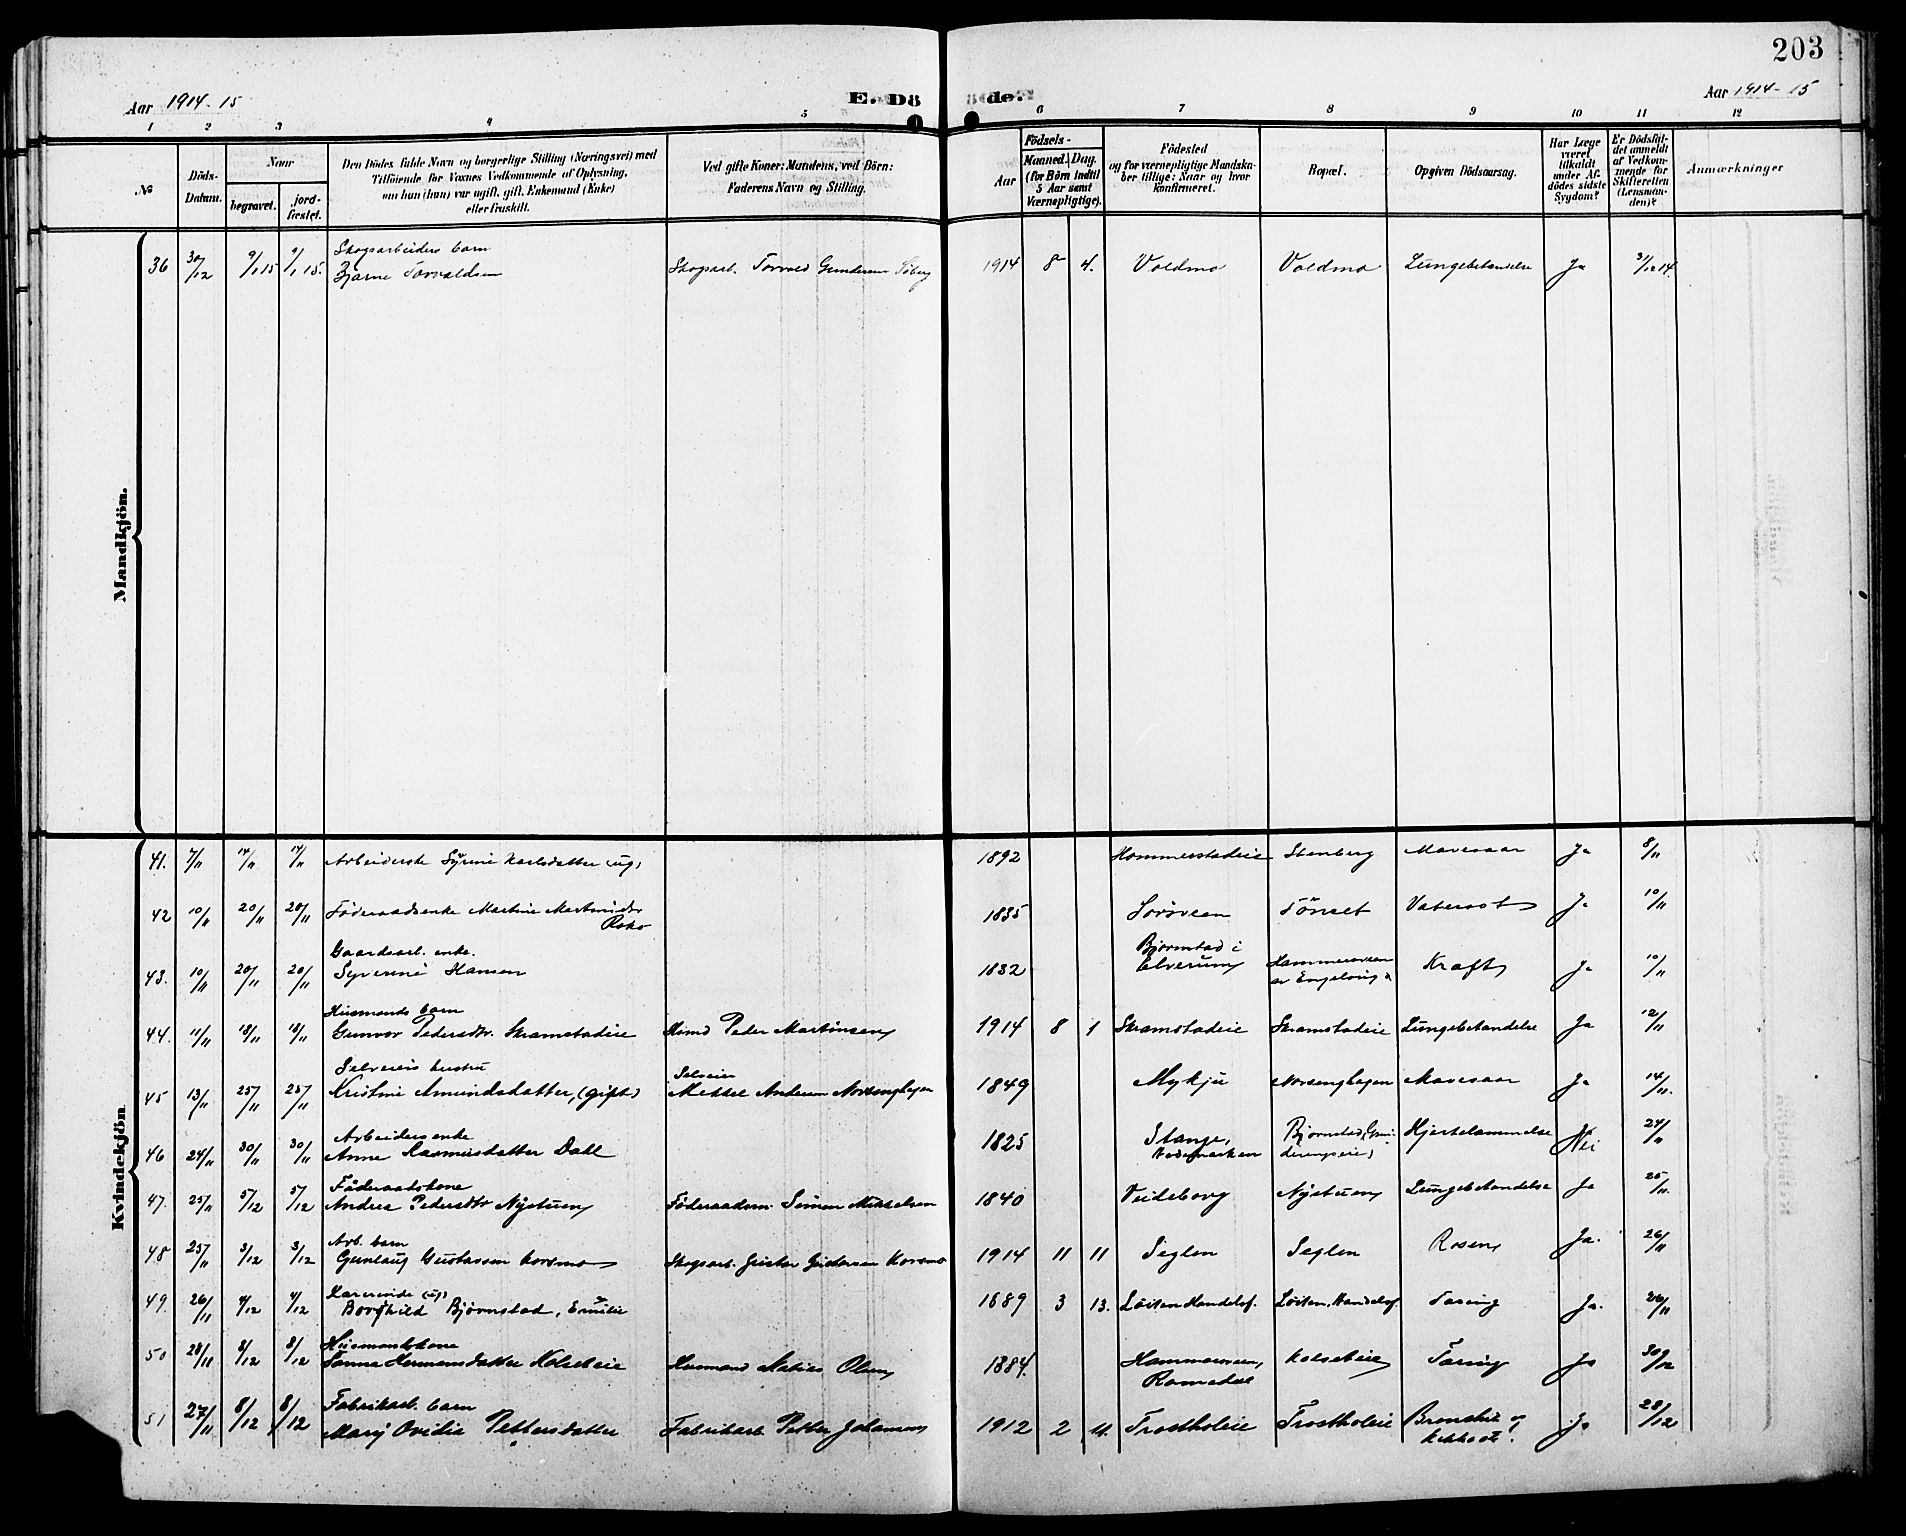 203
Aar 1914-15
E. Döde.
Aar 1914-15
1 2 3 4 5 6 7 8 9 10 11 12
No
Döds-
Datum.
Naar
begravet.
jord-
fæstet.
Den Dödes fulde Navn og borgerlige Stilling (Næringsvei) med
Tilföiende for Voxnes Vedkommende af Oplysning,
om hun (han) var ugift, gift, Enkemand (Enke)
eller fraskilt.
Ved gifte Koner: Mandens, ved Börn:
Faderens Navn og Stilling.
Födsels-
Aar
Maaned. Dag.
(for Börn indtil
5 Aar samt
Værnepligtige).
Födested
og for værnepligtige Mandska-
ber tillige: Naar og hvor
konfirmeret.
Bopæl.
Opgiven Dödsaarsag.
Har Læge
været
tilkaldt
under Af-
dödes sidste
Sygdom?
Er Dödsfal-
det anmeldt
af Vedkom-
mende for
Skifteretten
(Lensman-
den)?
Anmærkninger
Mandkjön.
Skogsarbeiders barn
36 30/12 9/1 15 9/1 15. Bjarne Torvaldsen Skogsarb. Torvald Gundersen 1914 8 4. Voldmo Voldmo Lungebetændelse Ja 31/12 14.
Kvindekjön
41. 7/11 14/11 14/11 Arbeiderske Syrine Karlsdatter (ug) 1892 Hommerstadeie Stenberg Mavesaar Ja 8/11
42 10/11 20/11 20/11 Föderaadsenke Martine Martinsdtr 1835 Tönset Vatersot Ja 10/11
Roko
Gaardsarb. enke.
Bjørnstad i
43. 10/11 20/11 20/11 Syverine Hansen 1832 Elverum Hammersveen Kræft Ja 10/11
Husmands barn
44. 11/11 18/11 18/11 Gunvor Pedersdtr. Skramstadeie Hsmd Peder Martinsen 1914 8 1 Skramstadeie Skramstadeie Lungebetændelse Ja 12/11
Selveiers hustru
Selveier
45 13/11 25/11 25/11 Kristine Amundsdatter, (gift) Mikkel Andersen Norsenghagen 1849 Mykju Norsenghagen Mavesaar Ja 14/11.
Arbeidersenke
46 24/11 30/11 30/11 Anne Rasmusdatter Dahl 1825 Stange, Bjørnstad, Hjertelammelse Nei 24/11
Hedemarken
Föderaadskone
47. 25/11 5/12 5/12 Andrea Pedersdtr Nystuen Föderaadsm. Simen Mikkelsen 1840 Veideborg Nystuen Lungebetændelse Ja 25/11.
Arb. barn
48 25/11 3/12 3/12 Gunlaug Gustavsen Korsmo Skogsarb. Gustav Gustavsen Korsmo 1914 11 11 Seglen Seglen Rosen Ja. 26/11
49. 26/11 4/12 4/12 Borghild Bjørnstad, Emilie 1889 3 13. Løiten Handelsf. Løiten Handelsf. Tæring Ja. 26/11
Husmandskone
50 28/11 8/12 8/12 Hermansdatter Kolsebeie Husmand Matias Olsen 1884. Hammersveen, Kolsebeie Tæring Ja 30/12
Romedal
Fabrikarb. barn
51 27/11 8/12 8/12 Mary Ovidie Pettersdatter Fabrikarb. Petter Johansen 1912 2 11. Trostholeie Trostholeie Bronchit og Ja 28/12
kikhoste.